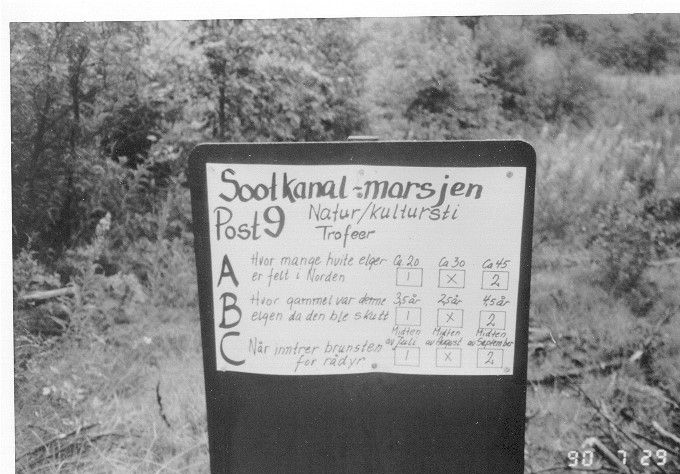 Sootkanal-marsjen
Post 9 Natur/kultursti
Trofeer
A Hvor mange hvite elger Ca 20 Ca 30 Ca 45
er felt i Norden 1 X 2
B Hvor gammel var denne 3,5år 2,5år 4,5år
elgen da den ble skutt 1 X 2
C Når inntrer brunsten Midten av Juli Midten av August Midten av September
for rådyr 1 X 2
90 7 29